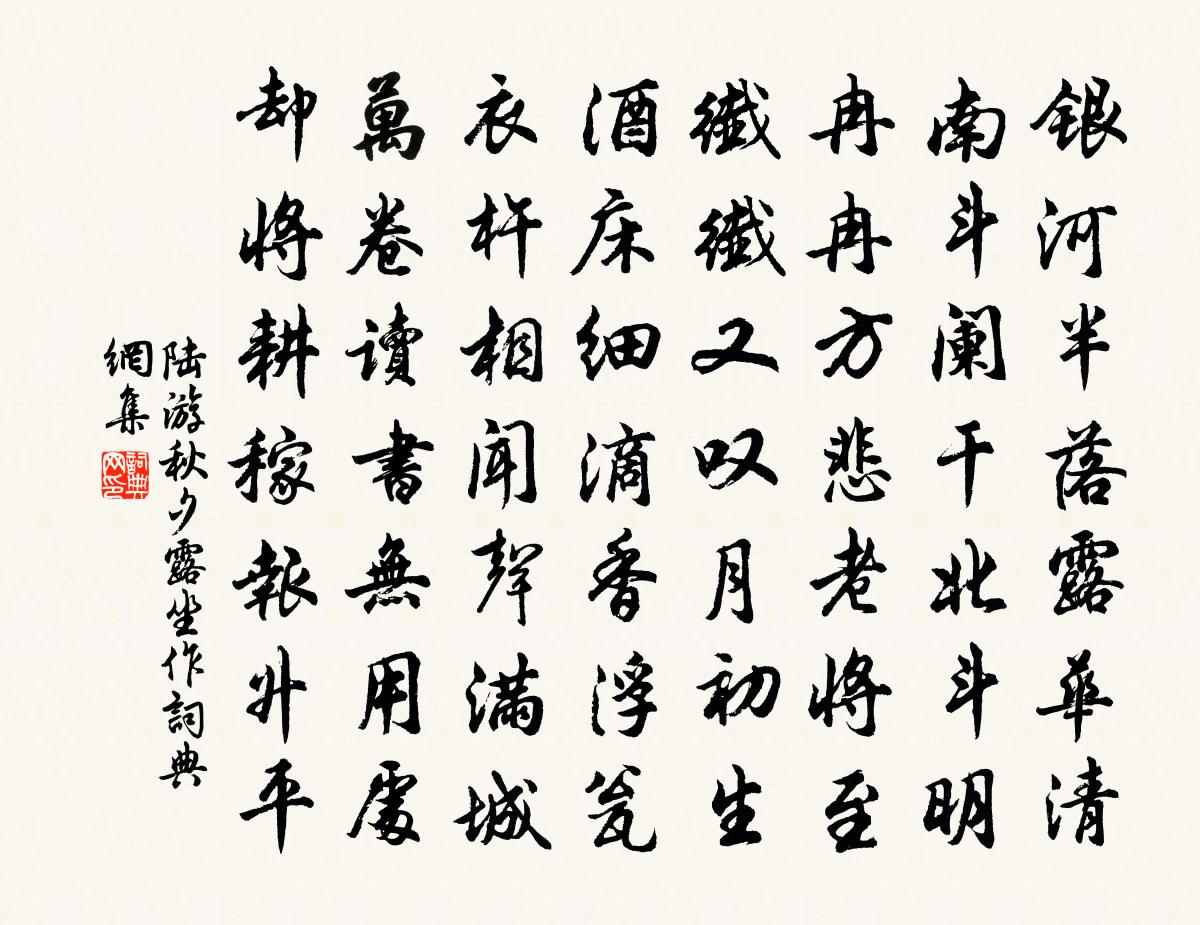 銀河半落露華清
南斗阑干北斗明
冉冉方悲老將至
纖纖又叹月初生
酒床细滴香浮瓮
衣杵相聞聲滿城
萬卷讀書無用處
却將耕稼報升平
陆游秋夕露坐作詞典
網集
詞典
网印